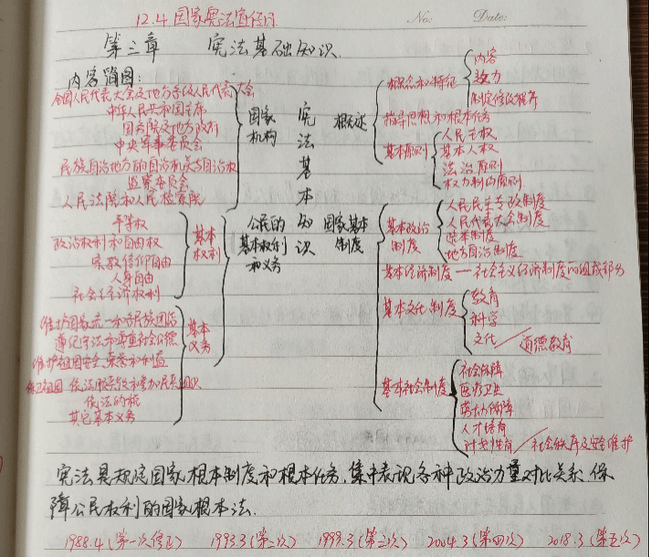 12.4 国家宪法宣传日
No: Date:
第三章 宪法基础知识
内容简图:
全国人民代表大会及地方各级人民代表大会
中华人民共和国主席
国务院及地方政府
中央军事委员会
民族自治地方的自治机关与自治权
监察委员会
人民法院和人民检察院
国家机构
平等权
政治权利和自由权
宗教信仰自由
人身自由
社会经济权利
基本权利
维护国家统一和各民族团结
遵纪守法和尊重社会公德
维护祖国安全、荣誉和利益
保卫祖国 依法服兵役和参加民兵组织
依法纳税
其它基本义务
基本义务
公民的基本权利和义务
宪法基本知识
概述
概念和特征
内容
效力
制定修改程序
指导思想和根本任务
基本原则
人民主权
基本人权
法治原则
权力制约原则
国家基本制度
基本政治制度
人民民主专政制度
人民代表大会制度
选举制度
地方自治制度
基本经济制度 — 社会主义经济制度的组成部分
基本文化制度
教育
科学
文化
道德教育
基本社会制度
社会保障
医疗卫生
劳动保障
人才培育
计划生育
社会秩序及安全维护
宪法是规定国家根本制度和根本任务,集中表现各种政治力量对比关系、保
障公民权利的国家根本法.
1988.4(第一次修正) 1993.3(第二次) 1999.3(第三次) 2004.3(第四次) 2018.3(第五次)